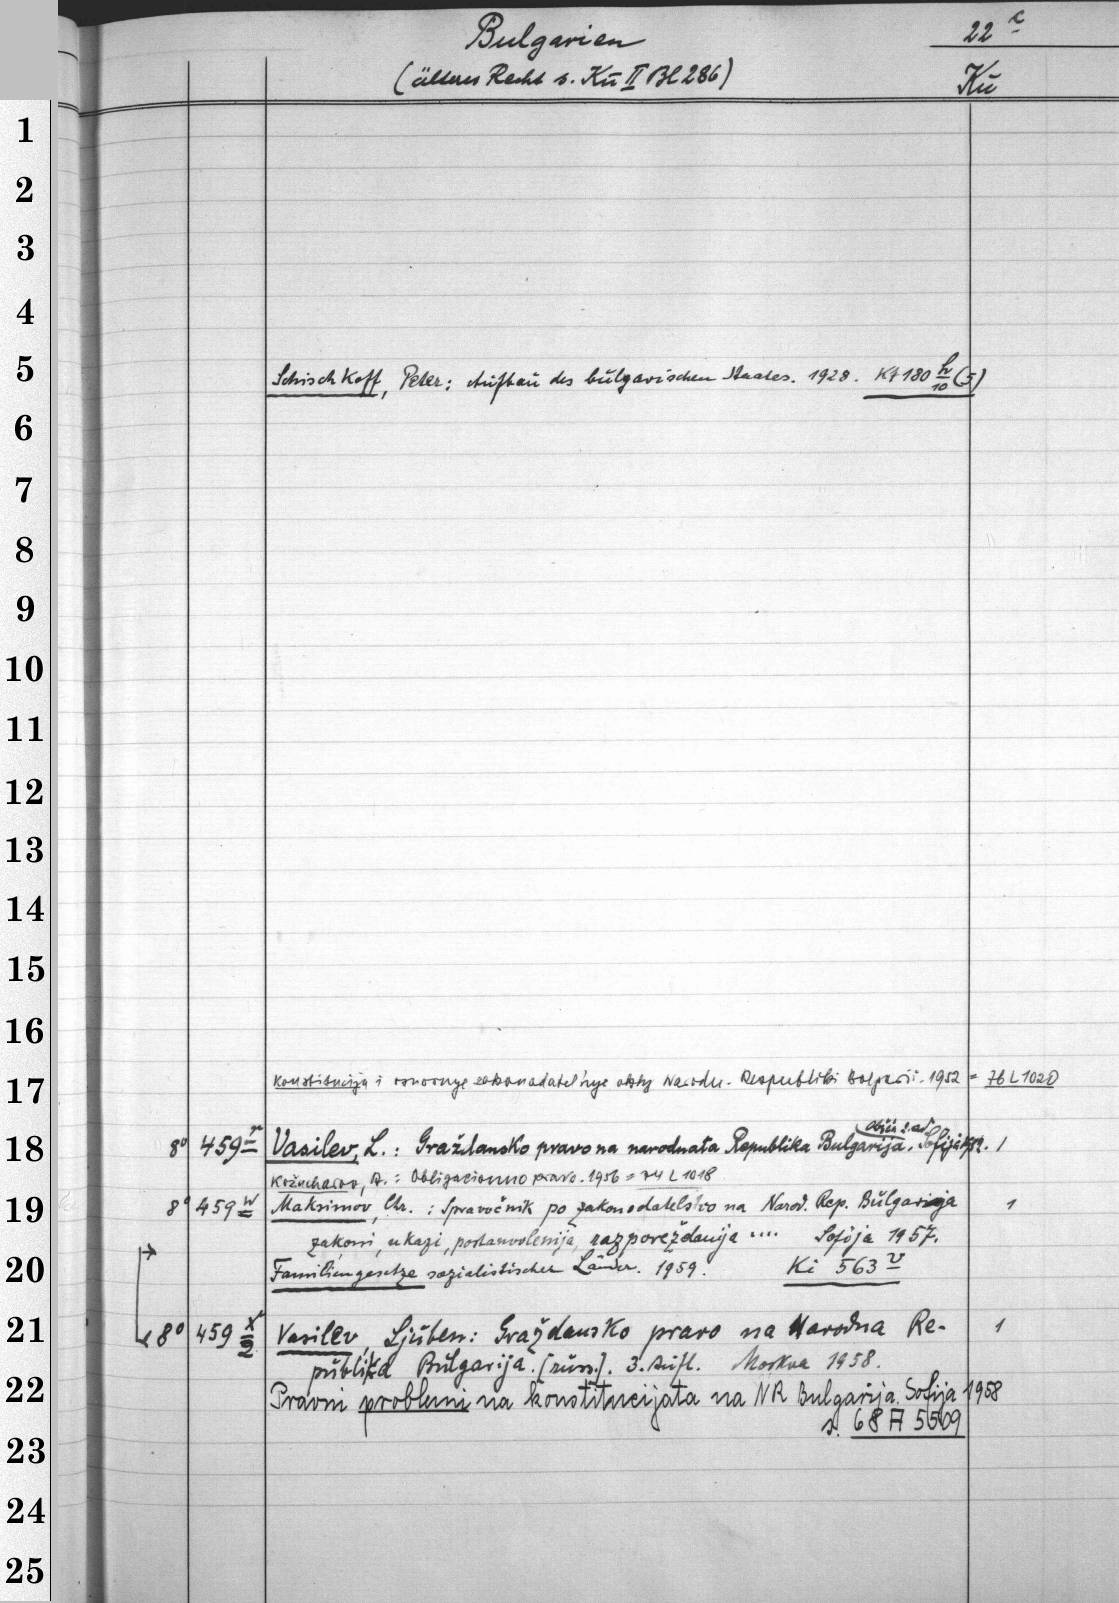 Bulgarien
22 c
(älteres Recht s. Kü II Bl 286)
Kü
1
2
3
4
5
Schischkoff, Peter: Aufbau des bulgarischen Staates. 1928. Kf 180 h/10 (5)
6
7
8
9
10
11
12
13
14
15
16
17
Konstitucija i osnovnye zakonodatel'nye akty Narodn. Respubliki Bolgarii. 1952 = 76 L 1020
18
8° 459 r Vasilev, L.: Graždansko pravo na narodnata Republika Bulgarija. 1
Kožucharov, A.: Obligacionno pravo. 1956 = 74 L 1018
19
8° 459 w Maksimov, Chr.: Spravočnik po zakonodatelstvo na Narod. Rep. Bŭlgarija 1
zakoni, ukazi, postanovlenija, razporeždanija .... Sofija 1957.
20
Familiengesetze sozialistischer Länder. 1959. Ki 563 v
21
8° 459 x/2 Vasilev, Ljuben: Graždansko pravo na Narodna Re- 1
publika Bŭlgarija. [russ.]. 3. Aufl. Moskva 1958.
22
Pravni problemi na konstitucijata na NR Bulgarija. Sofija 1958
s. 68 A 5509
23
24
25